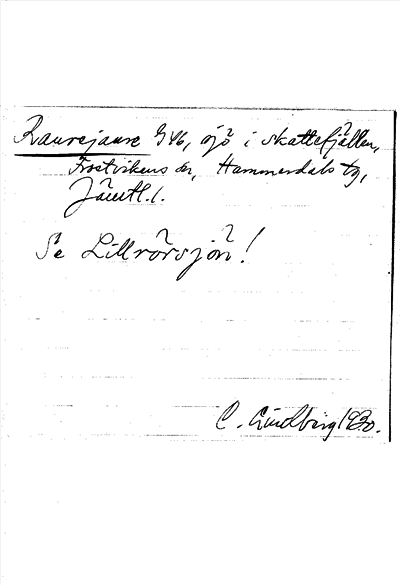 Raurejaure 946, sjö i Skattefjällen,
Frostvikens sn, Hammerdals tg,
Jämtl. l.
Se Lillrörsjön!
C. Lindberg 1930.